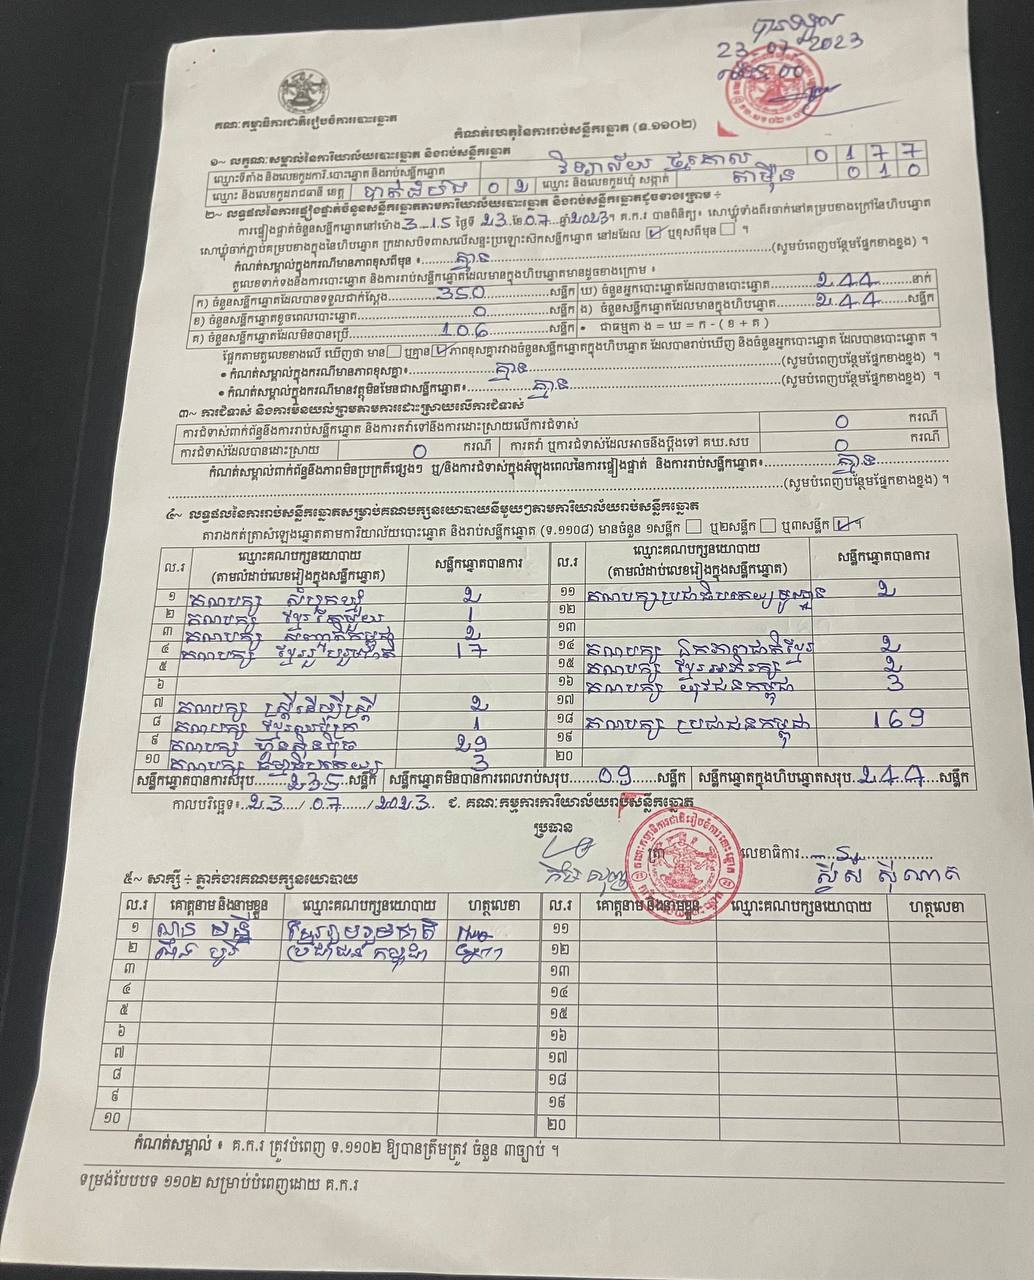 បានទទួល
23-07-2023
គណៈកម្មាធិការជាតិរៀបចំការបោះឆ្នោត
កំណត់ហេតុនៃការរាប់សន្លឹកឆ្នោត (ទ.១១០២)
១~ លក្ខណៈសម្គាល់នៃការិយាល័យបោះឆ្នោត និងរាប់សន្លឹកឆ្នោត
ឈ្មោះទីតាំង និងលេខកូដការិ.បោះឆ្នោត និងរាប់សន្លឹកឆ្នោត វិទ្យាល័យ 0 1 7 7
ឈ្មោះ និងលេខកូដរាជធានី ខេត្ត បាត់ដំបង 0 2 ឈ្មោះ និងលេខកូដឃុំ សង្កាត់ តាម៉ឺន 0 1 0
២~ លទ្ធផលនៃការផ្ទៀងផ្ទាត់ចំនួនសន្លឹកឆ្នោតតាមការិយាល័យបោះឆ្នោត និងរាប់សន្លឹកឆ្នោតដូចខាងក្រោម ÷
ការផ្ទៀងផ្ទាត់ចំនួនសន្លឹកឆ្នោតនៅម៉ោង 3 15 ថ្ងៃទី 23 ខែ 07 ឆ្នាំ 2023។ គ.ក.រ បានពិនិត្យ៖ សោឃ្មុំទាំងពីរចាក់នៅគម្របខាងក្រៅនៃហិបឆ្នោត
សោឃ្មុំចាក់ភ្ជាប់គម្របខាងក្នុងនៃហិបឆ្នោត ក្រដាសបិទពាសលើសន្ទះប្រឡោះស៊កសន្លឹកឆ្នោត នៅដដែល ☑ ឬខុសពីមុន ☐ ។
កំណត់សម្គាល់ក្នុងករណីមានភាពខុសពីមុន ៖ គ្មាន (សូមបំពេញបន្ថែមផ្នែកខាងខ្នង) ។
តួលេខទាក់ទងនឹងការបោះឆ្នោត និងការរាប់សន្លឹកឆ្នោតដែលមានក្នុងហិបឆ្នោតមានដូចខាងក្រោម ៖
ក) ចំនួនសន្លឹកឆ្នោតដែលបានទទួលជាក់ស្តែង 350 សន្លឹក ឃ) ចំនួនអ្នកបោះឆ្នោតដែលបានបោះឆ្នោត 244 នាក់
ខ) ចំនួនសន្លឹកឆ្នោតខូចពេលបោះឆ្នោត 0 សន្លឹក ង) ចំនួនសន្លឹកឆ្នោតដែលមានក្នុងហិបឆ្នោត 244 សន្លឹក
គ) ចំនួនសន្លឹកឆ្នោតដែលមិនបានប្រើ 106 សន្លឹក • ជាធម្មតា ង = ឃ = ក - ( ខ + គ )
ផ្អែកតាមតួលេខខាងលើ ឃើញថា មាន ☐ ឬគ្មាន ☑ ភាពខុសគ្នារវាងចំនួនសន្លឹកឆ្នោតក្នុងហិបឆ្នោត ដែលបានរាប់ឃើញ និងចំនួនអ្នកបោះឆ្នោត ដែលបានបោះឆ្នោត ។
• កំណត់សម្គាល់ក្នុងករណីមានភាពខុសគ្នា៖ គ្មាន (សូមបំពេញបន្ថែមផ្នែកខាងខ្នង) ។
• កំណត់សម្គាល់ក្នុងករណីមានវត្ថុមិនមែនជាសន្លឹកឆ្នោត៖ គ្មាន (សូមបំពេញបន្ថែមផ្នែកខាងខ្នង) ។
៣~ ការជំទាស់ និងការមិនយល់ព្រមតាមការដោះស្រាយលើការជំទាស់
ការជំទាស់ពាក់ព័ន្ធនឹងការរាប់សន្លឹកឆ្នោត និងការតវ៉ាទៅនឹងការដោះស្រាយលើការជំទាស់ 0 ករណី
ការជំទាស់ដែលបានដោះស្រាយ 0 ករណី ការតវ៉ា ឬការជំទាស់ដែលអាចនឹងប្តឹងទៅ គឃ.សប 0 ករណី
កំណត់សម្គាល់ពាក់ព័ន្ធនឹងភាពមិនប្រក្រតីផ្សេងៗ ឬ/និងការជំទាស់ក្នុងអំឡុងពេលនៃការផ្ទៀងផ្ទាត់ និងការរាប់សន្លឹកឆ្នោត៖ គ្មាន
(សូមបំពេញបន្ថែមផ្នែកខាងខ្នង) ។
៤~ លទ្ធផលនៃការរាប់សន្លឹកឆ្នោតសម្រាប់គណបក្សនយោបាយនីមួយៗតាមការិយាល័យរាប់សន្លឹកឆ្នោត
តារាងកត់ត្រាសំឡេងឆ្នោតតាមការិយាល័យបោះឆ្នោត និងរាប់សន្លឹកឆ្នោត (ទ.១១០៨) មានចំនួន ១សន្លឹក ☐ ឬ២សន្លឹក ☐ ឬ៣សន្លឹក ☑ ។
ល.រ ឈ្មោះគណបក្សនយោបាយ (តាមលំដាប់លេខរៀងក្នុងសន្លឹកឆ្នោត) សន្លឹកឆ្នោតបានការ ល.រ ឈ្មោះគណបក្សនយោបាយ (តាមលំដាប់លេខរៀងក្នុងសន្លឹកឆ្នោត) សន្លឹកឆ្នោតបានការ
១ គណបក្ស សំបុកឃ្មុំ 2 ១១ គណបក្សប្រជាធិបតេយ្យមូលដ្ឋាន 2
២ គណបក្ស ខ្មែរតែមួយ 1 ១២
៣ គណបក្ស សញ្ជាតិកម្ពុជា 2 ១៣
៤ គណបក្ស ខ្មែររួបរួមជាតិ 17 ១៤ គណបក្ស ឯកភាពជាតិខ្មែរ 2
៥ ១៥ គណបក្ស ខ្មែរអភិរក្ស 2
៦ ១៦ គណបក្ស យុវជនកម្ពុជា 3
៧ គណបក្ស ស្ត្រីដើម្បីស្ត្រី 2 ១៧
៨ គណបក្ស 1 ១៨ គណបក្ស ប្រជាជនកម្ពុជា 169
៩ គណបក្ស ហ្វ៊ុនស៊ិនប៉ិច 29 ១៩
១០ គណបក្ស ធម្មាធិបតេយ្យ 3 ២០
សន្លឹកឆ្នោតបានការសរុប 235 សន្លឹក សន្លឹកឆ្នោតមិនបានការពេលរាប់សរុប 09 សន្លឹក សន្លឹកឆ្នោតក្នុងហិបឆ្នោតសរុប 244 សន្លឹក
កាលបរិច្ឆេទ៖ 23 / 07 / 2023 ជ. គណៈកម្មការការិយាល័យរាប់សន្លឹកឆ្នោត
ប្រធាន ត្រា លេខាធិការ
៥~ សាក្សី ÷ ភ្នាក់ងារគណបក្សនយោបាយ
ល.រ គោត្តនាម និងនាមខ្លួន ឈ្មោះគណបក្សនយោបាយ ហត្ថលេខា ល.រ គោត្តនាម និងនាមខ្លួន ឈ្មោះគណបក្សនយោបាយ ហត្ថលេខា
១ ខ្មែររួបរួមជាតិ ១១
២ ប្រជាជនកម្ពុជា ១២
៣ ១៣
៤ ១៤
៥ ១៥
៦ ១៦
៧ ១៧
៨ ១៨
៩ ១៩
១០ ២០
កំណត់សម្គាល់ ៖ គ.ក.រ ត្រូវបំពេញ ទ.១១០២ ឱ្យបានត្រឹមត្រូវ ចំនួន ៣ច្បាប់ ។
ទម្រង់បែបបទ ១១០២ សម្រាប់បំពេញដោយ គ.ក.រ